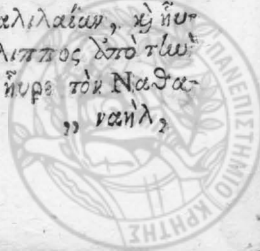 αλιλαίαν, ϗ ηὗ-
λιππος ἀπὸ τὴν
ηὗρε τὸν Ναθα-
„ ναήλ,
ΠΑΝΕΠΙΣΤΗΜΙΟ ΚΡΗΤΗΣ